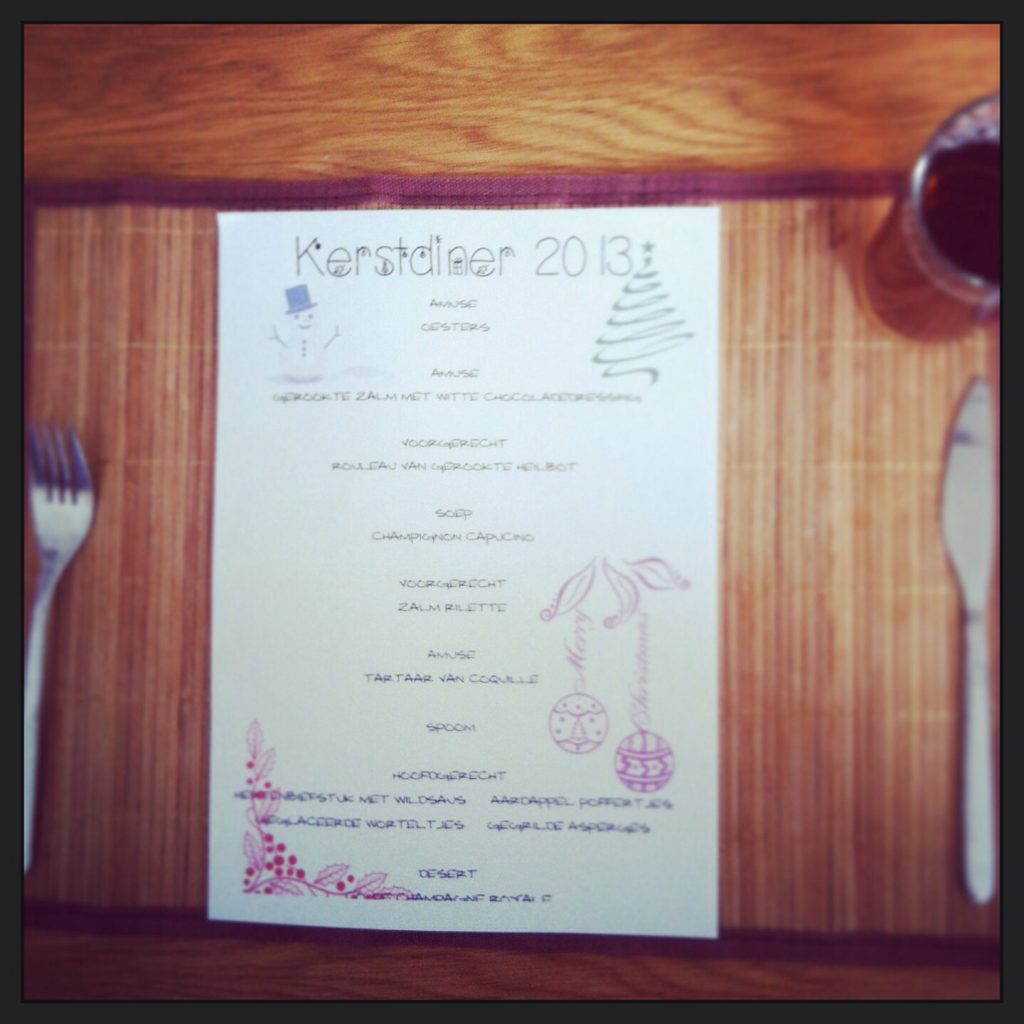 Kerstdiner 2013
AMUSE
OESTERS
AMUSE
GEROOKTE ZALM MET WITTE CHOCOLADEDRESSING
VOORGERECHT
ROULEAU VAN GEROOKTE HEILBOT
SOEP
CHAMPIGNON CAPUCINO
VOORGERECHT
ZALM RILETTE
AMUSE
TARTAAR VAN COQUILLE
SPOOM
HOOFDGERECHT
HERTENBIEFSTUK MET WILDSAUS AARDAPPEL POFFERTJES
GEGLACEERDE WORTELTJES GEGRILDE ASPERGES
DESERT
CHAMPAGNE ROYALE
Merry
Christmas